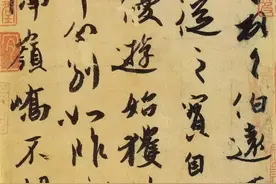 首伯遠
從之寶自
優遊始獲
分別如昨
嶺嶠不